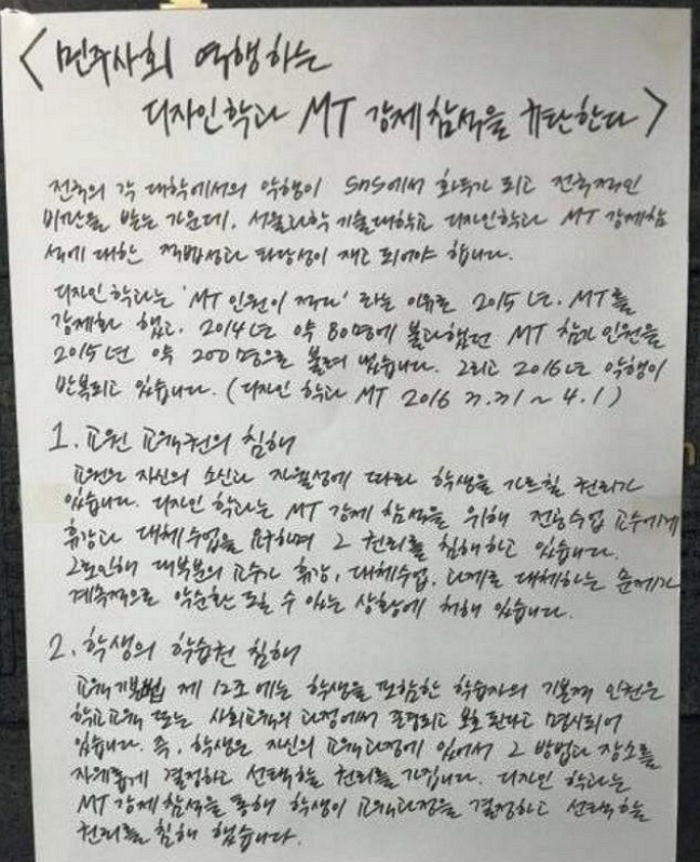 <민주사회 역행하는
디자인학과 MT 강제참석을 규탄한다>
전국의 각 대학에서의 악행이 SNS에서 화두가 되고 전국적인
비난을 받는 가운데, 서울과학기술대학교 디자인학과 MT 강제참
석에 대한 적법성과 타당성이 재고 되어야 합니다.
디자인학과는 'MT 인원이 적다' 라는 이유로 2015년, MT를
강제화 했고, 2014년 약 80명에 불과했던 MT 참가 인원을
2015년 약 200명으로 불려 냈습니다. 그리고 2016년 악행이
반복되고 있습니다. (디자인 학과 MT 2016 3.31 ~ 4.1)
1. 교원 교육권의 침해
교원은 자신의 소신과 자율성에 따라 학생을 가르칠 권리가
있습니다. 디자인 학과는 MT 강제 참석을 위해 전공수업 교수에게
휴강과 대체수업을 요구하며 그 권리를 침해하고 있습니다.
그로인해 대부분의 교수가 휴강, 대체수업, 과제로 대체하는 문제가
계속적으로 악순환 될 수 있는 상황에 처해 있습니다.
2. 학생의 학습권 침해
교육기본법 제 12조에는 학생을 포함한 학습자의 기본적 인권은
학교교육 또는 사회교육의 과정에서 존중되고 보호된다고 명시되어
있습니다. 즉, 학생은 자신의 교육과정에 있어서 그 방법과 장소를
자유롭게 결정하고 선택할 권리를 가집니다. 디자인 학과는
MT 강제참석을 통해 학생이 교육과정을 결정하고 선택할
권리를 침해 했습니다.